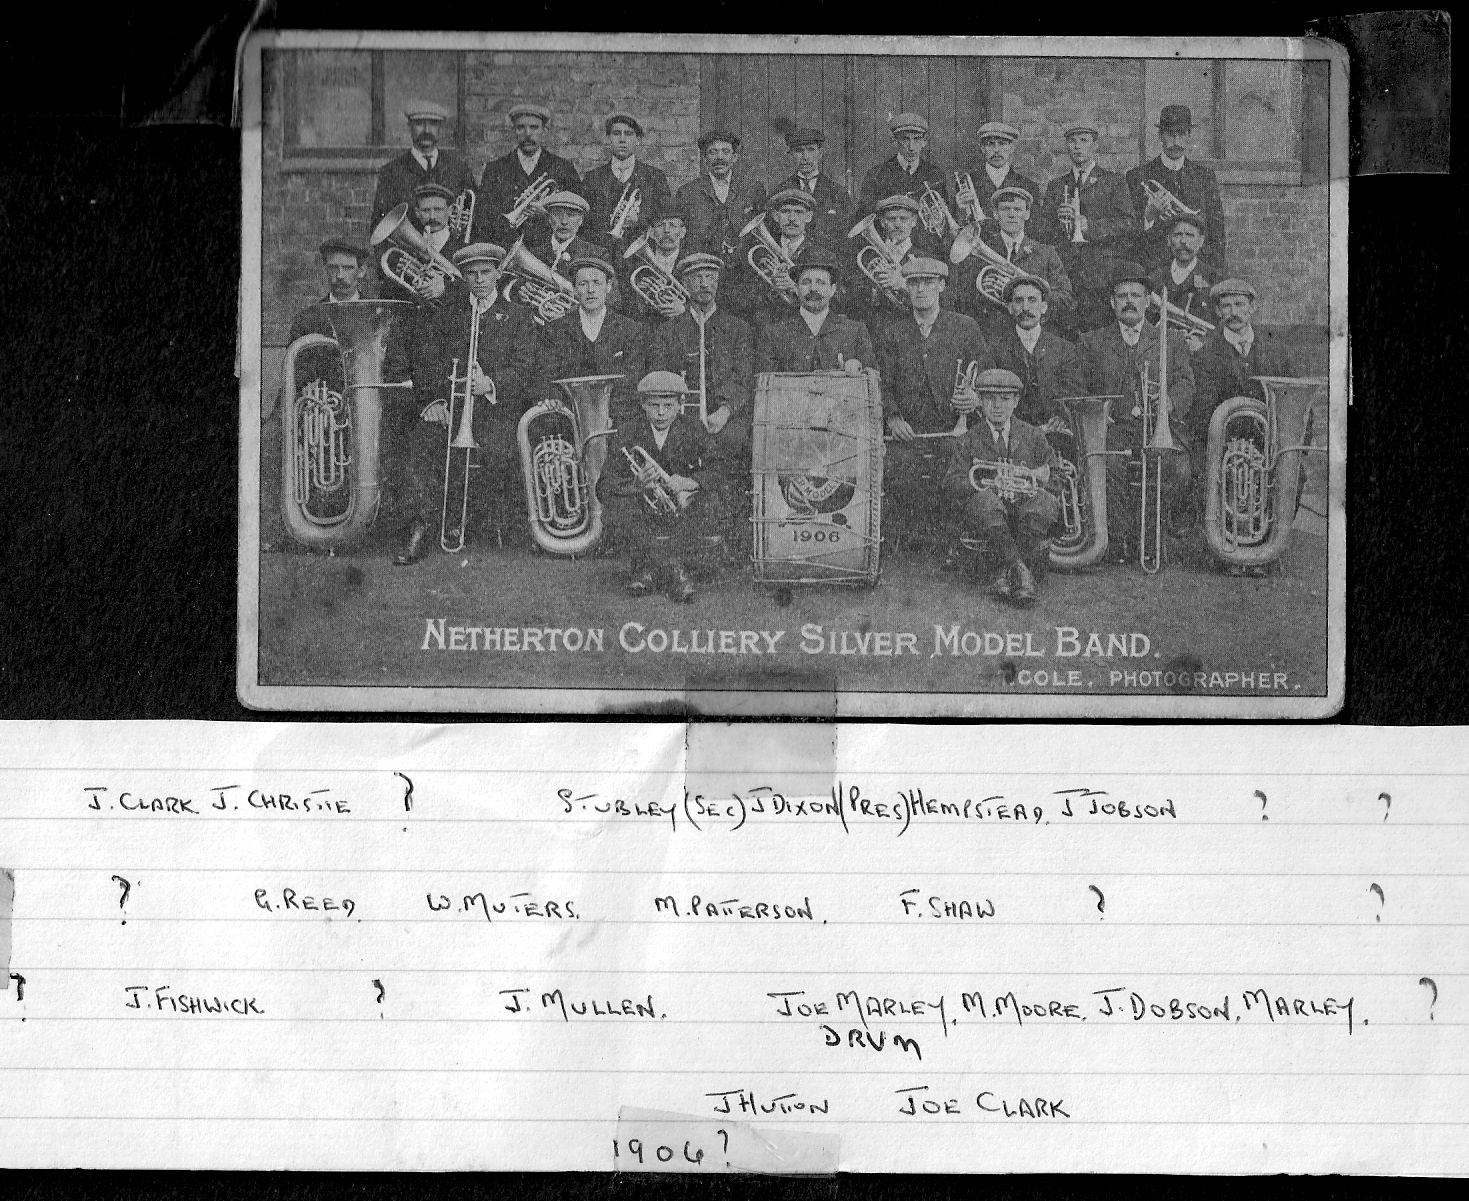 MODEL
1906
NETHERTON COLLIERY SILVER MODEL BAND.
COLE. PHOTOGRAPHER.
J. CLARK. J. CHRISTIE ? STUBLEY (SEC) J DIXON (PRES) HEMPSTEAD. J JOBSON ? ?
? G. REED. W. MUTERS. M. PATTERSON. F. SHAW ? ?
? J. FISHWICK. ? J. MULLEN. JOE MARLEY. M. MOORE. J. DOBSON. MARLEY. ?
DRUM
J HUTTON JOE CLARK
1906?